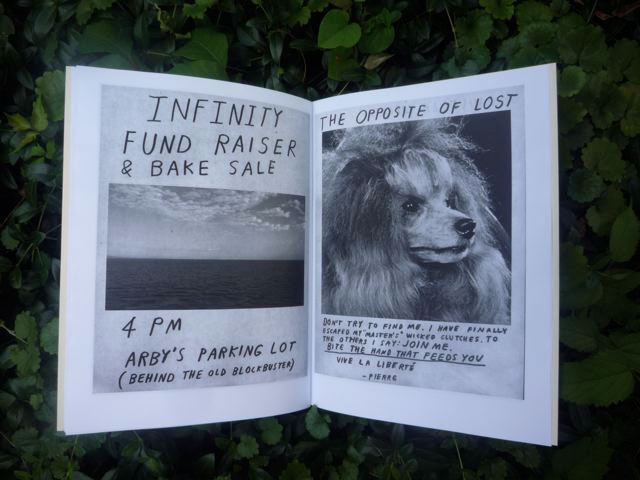 INFINITY
FUND RAISER
& BAKE SALE
4 PM
ARBY'S PARKING LOT
(BEHIND THE OLD BLOCKBUSTER)
THE OPPOSITE OF LOST
DON'T TRY TO FIND ME. I HAVE FINALLY
ESCAPED MY "MASTER'S" WICKED CLUTCHES. TO
THE OTHERS I SAY: JOIN ME.
BITE THE HAND THAT FEEDS YOU
VIVE LA LIBERTÉ
-PIERRE